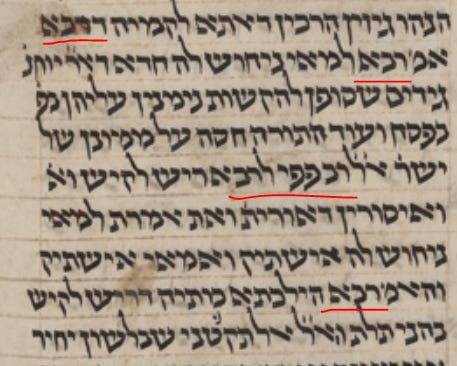 הנהו גידין הרכין דאתא לקמייה דרבא
אמ' רבא למאי ניחוש לה חדא דא'ר' יוחנ
גידים שסופן להקשות נימנין עליהן
בפסח ועוד התורה חסה על ממונן של
ישר' א'ל' רב פפי לרבא ריש לקיש וא
ואיסורין דאורית' ואת אמרת למאי
ניחוש לה אישתיק ואמאי אישתיק
והאמ' רבא הילכתא כותיה דריש לקיש
בהני תלת אל תקטני שבלשון יחיד